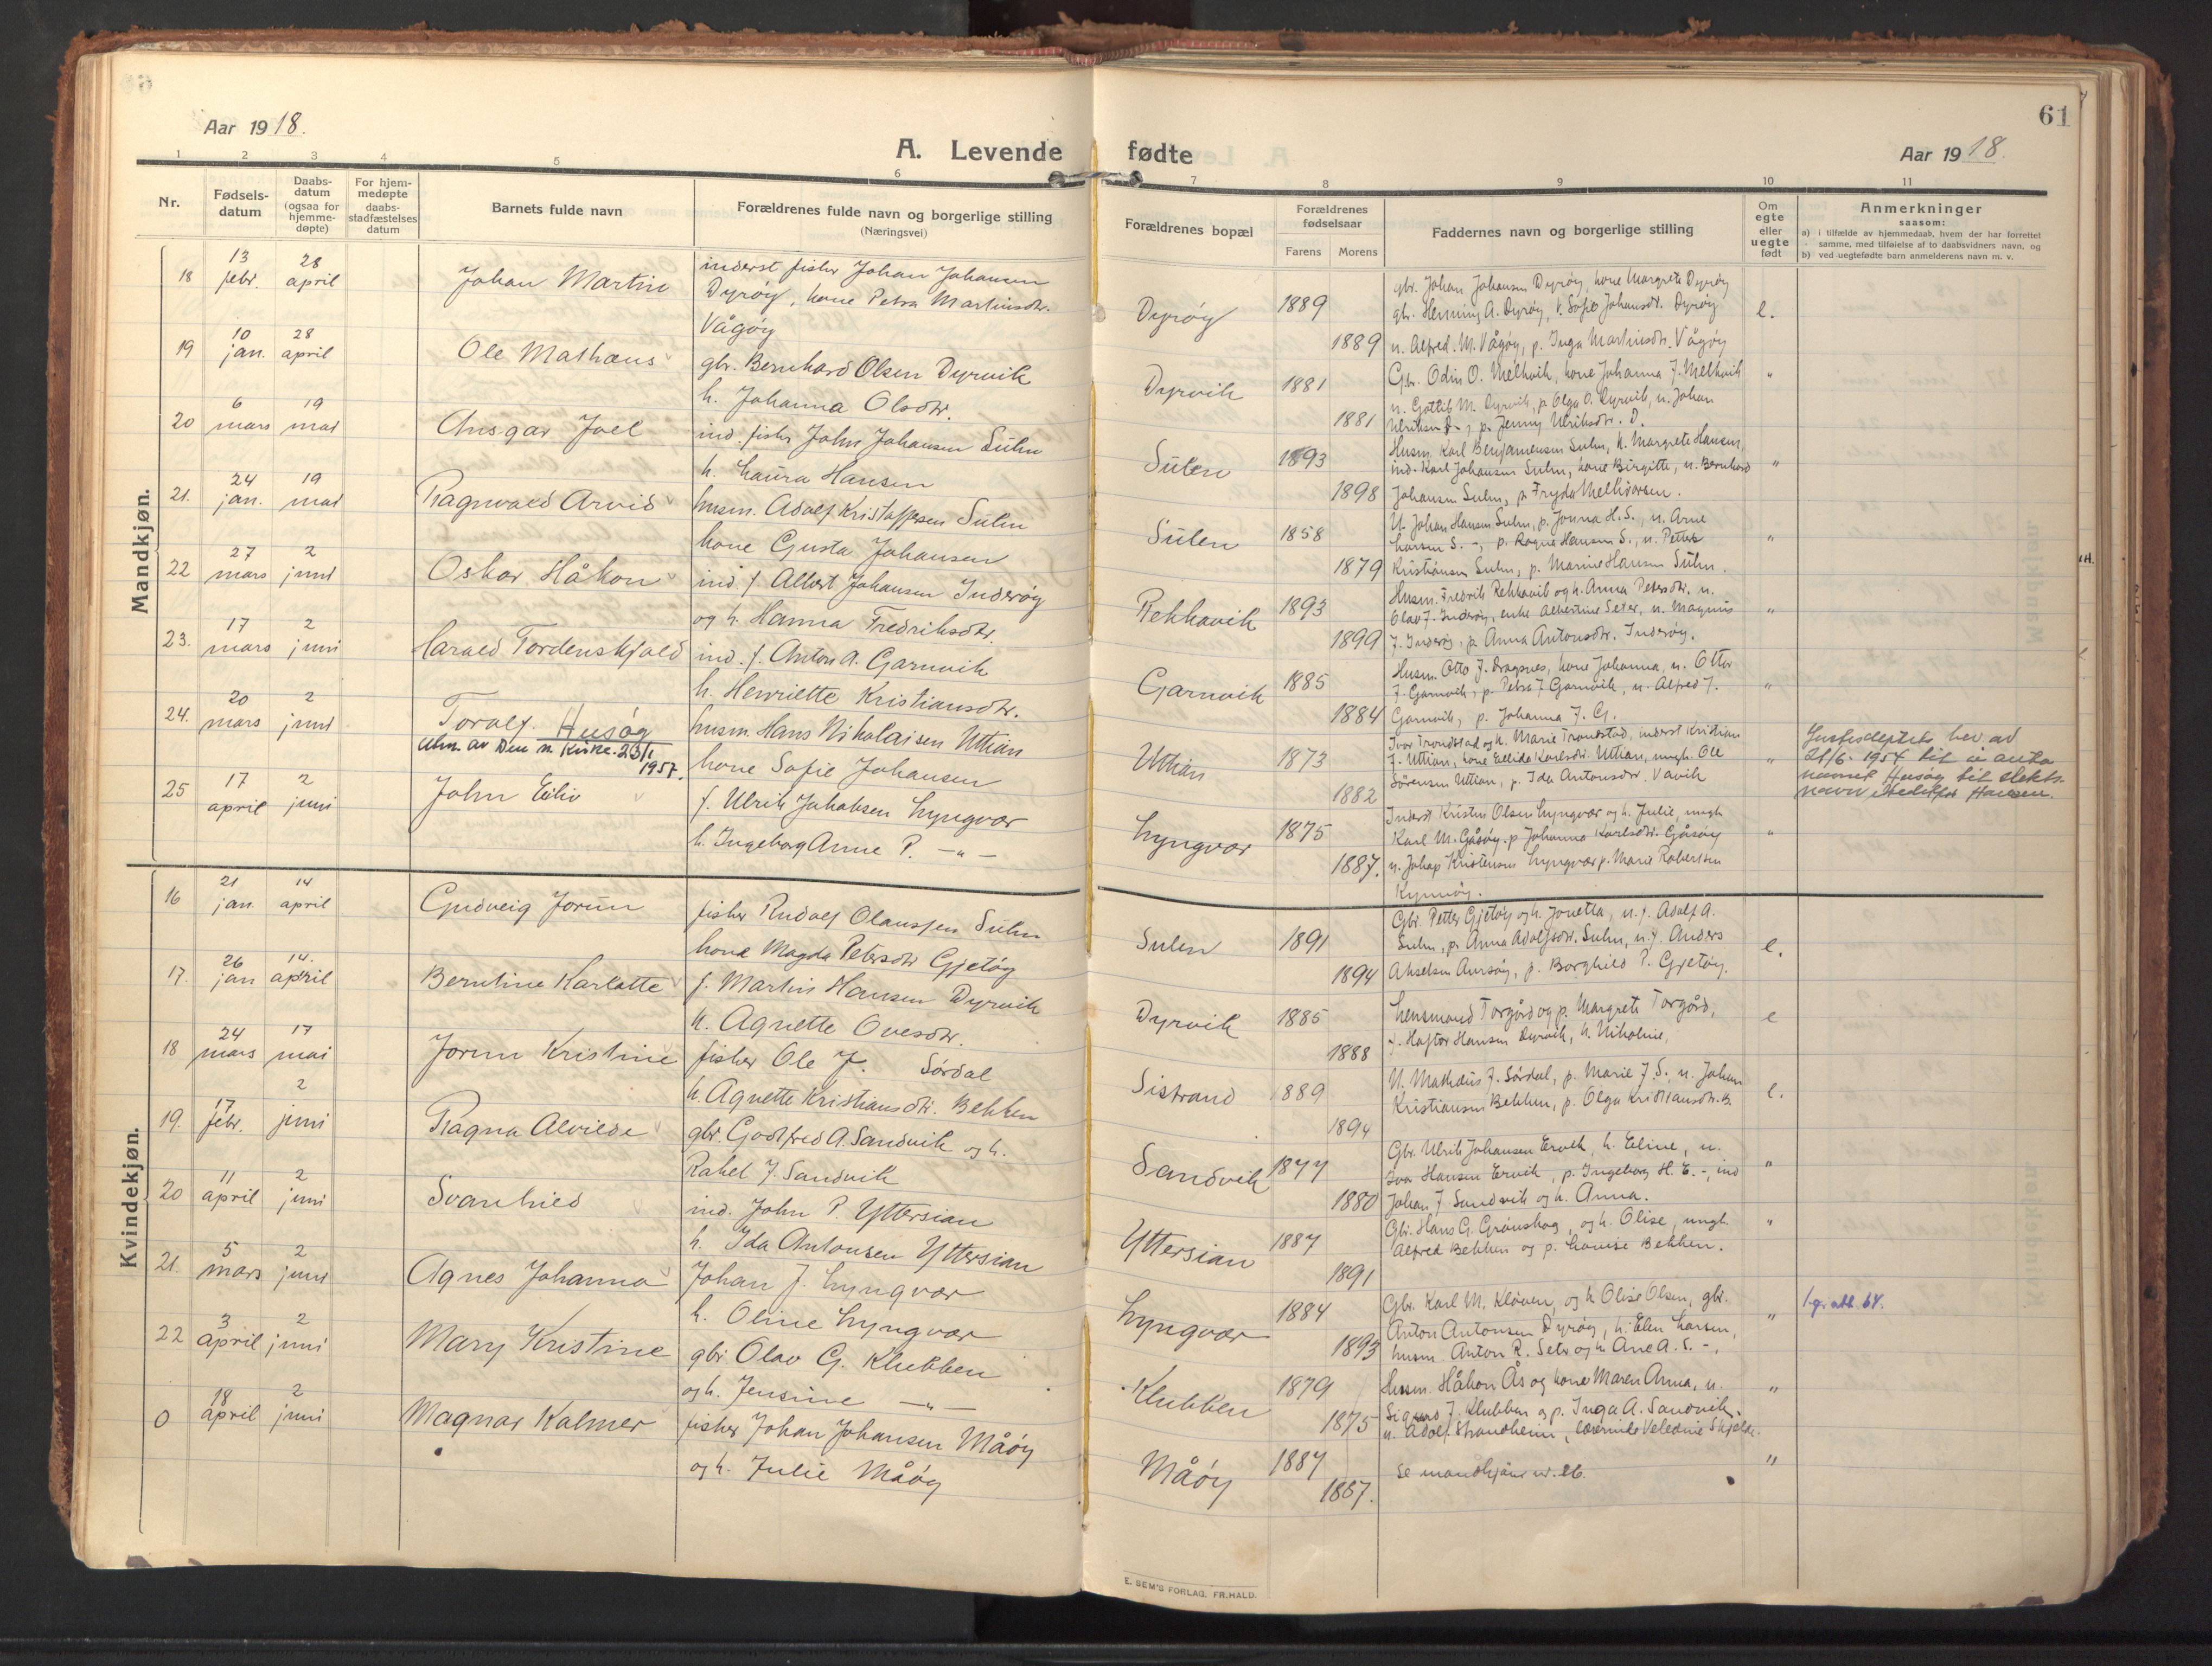 Aar 1918.
A. Levende
1 2 3 4 5 6
Nr.
Fødsels-
datum
Daabs-
datum
(ogsaa for
hjemme-
døpte)
For hjem-
medøpte
daabs-
stadfæstelses
datum
Barnets fulde navn
Forældrenes fulde navn og borgerlige stilling
(Næringsvei)
Mandkjøn.
18 13 febr. 28 april Johan Martin
inderst fisker Johan Johansen
Dyrøy, kone Petra Martinsdtr.
Vågøy
19 10 jan. 28 april Ole Mathæus
gbr. Bernhard Olsen Dyrvik
h. Johanna Olsdtr.
20 6 mars 19 mai Ansgar Joel
ind. fisker John Johansen Suln
h. Laura Hansen
21. 24 jan. 19 mai Ragnvald Arvid
husm. Adolf Kristoffersen Suln
kone Gusta Johansen
22 27 mars 2 juni Oskar Håkon
ind. f. Albert Johansen Inderøy
og h. Hanna Fredriksdtr.
23. 17 mars 2 juni Harald Tordenskjold
ind. f. Anton A. Garnvik
h. Henriette Kristiansdtr.
24. 20 mars 2 juni Toralf Husøy
Utm. av Den n. Kirke. 23/1 1957.
husm. Hans Nikolaisen Uttian
kone Sofie Johansen
25 17 april 2 juni John Eiliv
f. Ulrik Jakobsen Lyngvær
h. Ingeborg Anne P. -"-
Kvindekjøn.
16 21 jan. 14 april Gudveig Jorun
fisker Rudolf Olaussen Suln
kone Magda Petersdtr Gjetøy
17. 26 jan 14. april Berntine Karlotte
f. Martin Hansen Dyrvik
h. Agnette Ovesdtr.
18 24 mars 17 mai Jorun Kristine
fisker Ole J. Sørdal
h. Agnette Kristiansdtr. Bekken
19. 17 febr. 2 juni Ragna Alvilde
gbr. Godtfred A. Sandvik og h.
Rakel J. Sandvik
20 11 april 2 juni Svanhild
ind. John P. Yttersian
h. Ida Antonsen Yttersian
21. 5 mars 2 juni Agnes Johanna
Johan J. Lyngvær
h. Oline Lyngvær
22 3 april 2 juni Mary Kristine
gbr Olav G. Klubben
og h. Jensine -"-
0 18 april 2 juni Magnar Kalmer
fisker Johan Johansen Måøy
og h. Julie Måøy
61
fødte
Aar 1918.
7 8 9 10 11
Forældrenes bopæl
Forældrenes
fødselsaar
Farens Morens
Faddernes navn og borgerlige stilling
Om
egte
eller
uegte
født
Anmerkninger
saasom:
a) i tilfælde av hjemmedaab, hvem der har forrettet
samme, med tilføielse af to daabsvidners navn, og
b) ved uegtefødte barn anmelderens navn m. v.
Dyrøy 1889 1889 e.
gbr. Johan Johansen Dyrøy, kone Margrete Dyrøy
gbr. Henning A. Dyrøy, k. Sofie Johansdtr. Dyrøy
u. Alfred M. Vågøy, p. Inga Martinsdtr. Vågøy
Dyrvik 1881 1881 "
Gbr. Odin O. Melkvik, kone Johanna J. Melkvik
u. Gottlib M. Dyrvik, p. Olga O. Dyrvik, u. Johan
Ulriksen D-, p. Jenny Ulriksdtr. D.
Sulen 1893 1898 "
Husm. Karl Benjaminsen Suln, k. Margrete Hansen,
ind. Karl Johansen Suln, kone Birgitte, u. Bernhard
Johansen Suln, p. Fryda Melkiorsen.
Sulen 1858 1879 "
U. Johan Hansen Suln, p. Jonna H. S., u. Arne
Larsen S. -, p. Ragna Hansen S., u. Petter
Kristiansen Suln, p. Marine Hansen Suln.
Rekkavik 1893 1899 "
Husm. Fredrik Rekkavik og h. Anna Petersdtr. u.
Olav J. Inderøy, enke Albertine Seter, u. Magnus
J. Inderøy, p. Anna Antonsdtr. Inderøy.
Garnvik 1885 1884 "
Husm. Otto J. Dragsnes, kone Johanna, u. Ottar
J. Garnvik, p. Petra J. Garnvik, u. Alfred J.
Garnvik, p. Johanna J. G.
Uttian 1873 1882 "
Ivar Trondstad og h. Marie Trondstad, inderst Kristian
J. Uttian, kone Ellida Karlsdtr. Uttian, ungk. Ole
Sørensen Uttian, p. Ida Antonsdtr. Vavik
21/6-1954 til å anta
navnet Husøy til slekts-
navn Hansen.
Lyngvær 1875 1887. "
Inderst Kristen Olsen Lyngvær og h. Julie, ungk.
Karl M. Gåsøy, p Johanna Karlsdtr. Gåsøy
u. Johan Kristensen Lyngvær p. Marie Robertsen
Kynnøy.
Sulen 1891 1894 e.
Gbr. Petter Gjetøy og h. Jonetta, u. f. Adolf A.
Suln, p. Anna Adolfsdtr. Suln, u. f. Anders
Akselsen Aursøy, p. Borghild P. Gjetøy.
Dyrvik 1885 1888 e
Lensmand Torgård og p. Margrete Torgård,
f. Haftor Hansen Dyrvik, k. Nikoline,
Sistrand 1889 1894 e.
U. Mathæus J. Sørdal, p. Marie J. S., u. Johan
Kristiansen Bekken, p. Olga Kristiansdtr. B.
Sandvik 1877 1880 "
Gbr. Ulrik Johansen Ervik, h. Eline, u.
Ivar Hansen Ervik, p. Ingeborg H. E. -, ind
Johan J Sandvik og h. Anna.
Yttersian 1887 1891 "
Gbr. Hans G. Grønskag, og h. Olise, ungk.
Alfred Bekken og p. Lovise Bekken.
Lyngvær 1884 1893 "
Gbr. Karl M. Kløven, og h Olise Olsen, gbr.
Anton Antonsen Dyrøy, h. Elen Larsen,
husm. Anton R. Setr og h Ane A. S. -.
1.gr. att. 64.
Klubben 1879 1875 "
Husm. Håkon Ås og kone Maren Anna, u.
Sigurd J. Klubben og p. Inga A. Sandvik.
u. Adolf Strandheim, lærerinde
Måøy 1887 1887. "
Se mandkjøn nr. 26.
E. SEM'S FORLAG, FR.HALD.